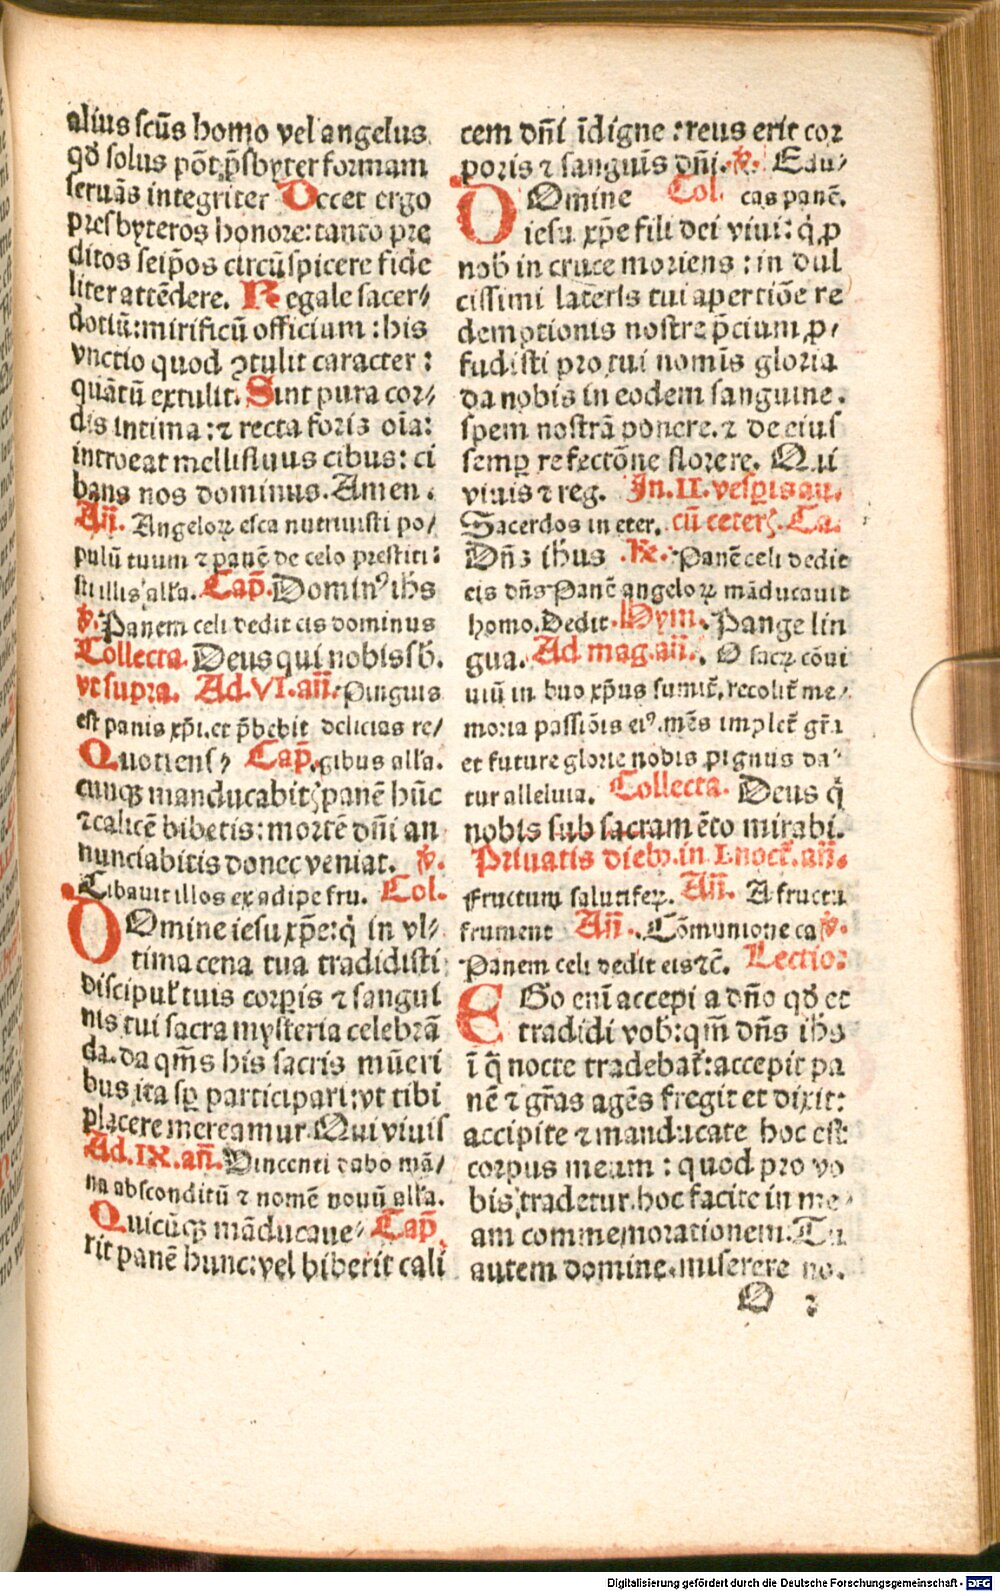 alius scūs homo vel angelus
qđ solus pōt p̄sbyter formam
seruās integriter Docet ergo
presbyteros honore: tanto pre
ditos seip̄os circūspicere fide
liter attēdere. Regale sacer⸗
dotiū: mirificū officium: his
vnctio quod ꝯtulit caracter:
quātū extulit. Sint pura cor⸗
dis intima: ⁊ recta foris oīa:
introeat mellifluus cibus: ci
bans nos dominus. Amen.
Añ. Angeloꝝ esca nutriuisti po/
pulū tuum ⁊ panē de celo prestiti⸗
sti illis alla. Cap̄. Dominꝰ ihs
℣. Panem celi dedit eis dominus
Collecta. Deus qui nobis sb̄.
vt supra. Ad. VI. añ. Pinguis
est panis xp̄i. et p̄bebit delicias re/
Quotiens⸗ Cap̄. gibus alla.
cunqꝫ manducabitꝭ panē hūc
⁊ calicē bibetis: mortē dn̄i an
nunciabitis donec veniat. ℣.
Cibauit illos ex adipe fru. Col.
DOmine iesu xp̄e: q̇ in vl⸗
tima cena tua tradidisti
discipul̄ tuis corꝑis ⁊ sangui
nis tui sacra mysteria celebrā
da. da qm̄s his sacris mūeri
bus ita sꝑ participari: vt tibi
placere mereamur. Qui viuis
Ad. IX. añ. Vincenti dabo mā/
na absconditū ⁊ nomē nouū alla.
Quicūqꝫ māducaue⸗ Cap̄.
rit panē hunc: vel biberit cali
cem dn̄i īdigne: reus erit cor
poris ⁊ sanguīs dn̄i. ℣. Edu⸗
DOmine Col. cas panē.
iesu xp̄e fili dei viui: q̇ ꝓ
nob̄ in cruce moriens: in dul
cissimi lateris tui apertiōe re
demptionis nostre p̄cium ꝓ/
fudisti pro tui nomīs gloria
da nobis in eodem sanguine.
spem nostrā ponere. ⁊ de eius
semꝑ refectōne florere. Qui
viuis ⁊ reg. In. II. vesꝑis añ.
Sacerdos in eter. cū ceterꝭ. Ca.
Dn̄s ihus ℟. Panē celi dedit
eis dn̄s Panē angeloꝝ māducauit
homo. Dedit. Hym. Pange lin
gua. Ad mag. añ. O sacꝝ cōui
uiū in quo xp̄us sumit̄, recolit̄ me⸗
moria passiōis eiꝰ. mēs implet̄ gr̄a
et future glorie nobis pignus da⸗
tur alleluia. Collecta. Deus q̇
nobis sub sacram ēto mirabi.
Priuatis dieb⁊. in. I. noct̄. añ.
Fructum salutifeꝝ. Añ. A fructu
frument Añ. Cōmunione ca ℣.
Panem celi dedit eis ⁊c̄. Lectio:
EGo enī accepi a dn̄o qđ et
tradidi vob̄: qm̄ dn̄s ihs
ī q̄ nocte tradebat̄: accepit pa
nē ⁊ gr̄as agēs fregit et dixit:
accipite ⁊ manducate hoc est
corpus meum: quod pro vo
bis tradetur. hoc facite in me⸗
am commemorationem. Tu
autem domine. miserere no.
O 2
Digitalisierung gefördert durch die Deutsche Forschungsgemeinschaft - DFG